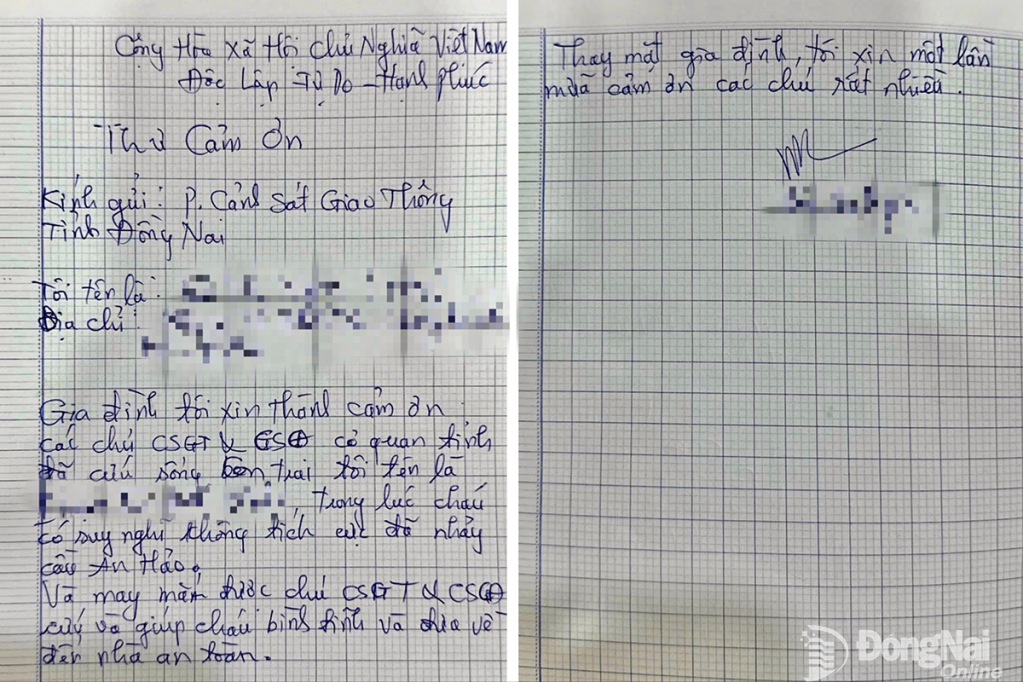 Cộng Hòa Xã Hội Chủ Nghĩa Việt Nam
Độc Lập Tự Do - Hạnh phúc
Thư Cảm Ơn
Kính gửi: P. Cảnh Sát Giao Thông
Tỉnh Đồng Nai
Tôi tên là:
Địa chỉ:
Gia đình tôi xin thành cảm ơn
các chú CSGT & CSCĐ cơ quan tỉnh
đã cứu sống con trai tôi tên là
, trong lúc cháu
có suy nghĩ không tích cực đã nhảy
cầu An Hảo.
Và may mắn được chú CSGT & CSCĐ
cứu và giúp cháu bình tĩnh và đưa về
đến nhà an toàn.
Thay mặt gia đình, tôi xin một lần
nữa cảm ơn các chú rất nhiều.
ĐồngNai
Online